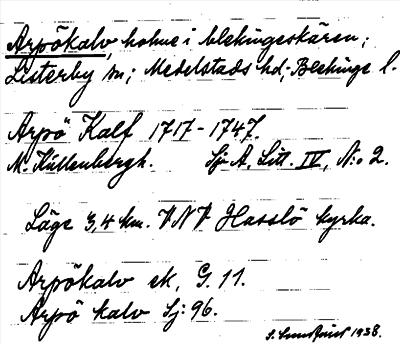 Arpökalv, holme i blekingeskären;
Listerby sn; Medelstads hd; Blekinge l.
Arpö Kalf 1717-1747.
N. Küllenbergh. Sjö A, Litt. IV, N:o 2.
Läge 3,4 km. VNV Hasslö kyrka.
Arpökalv ek, G. 11.
Arpö kalv Sj: 96.
S. 1938.